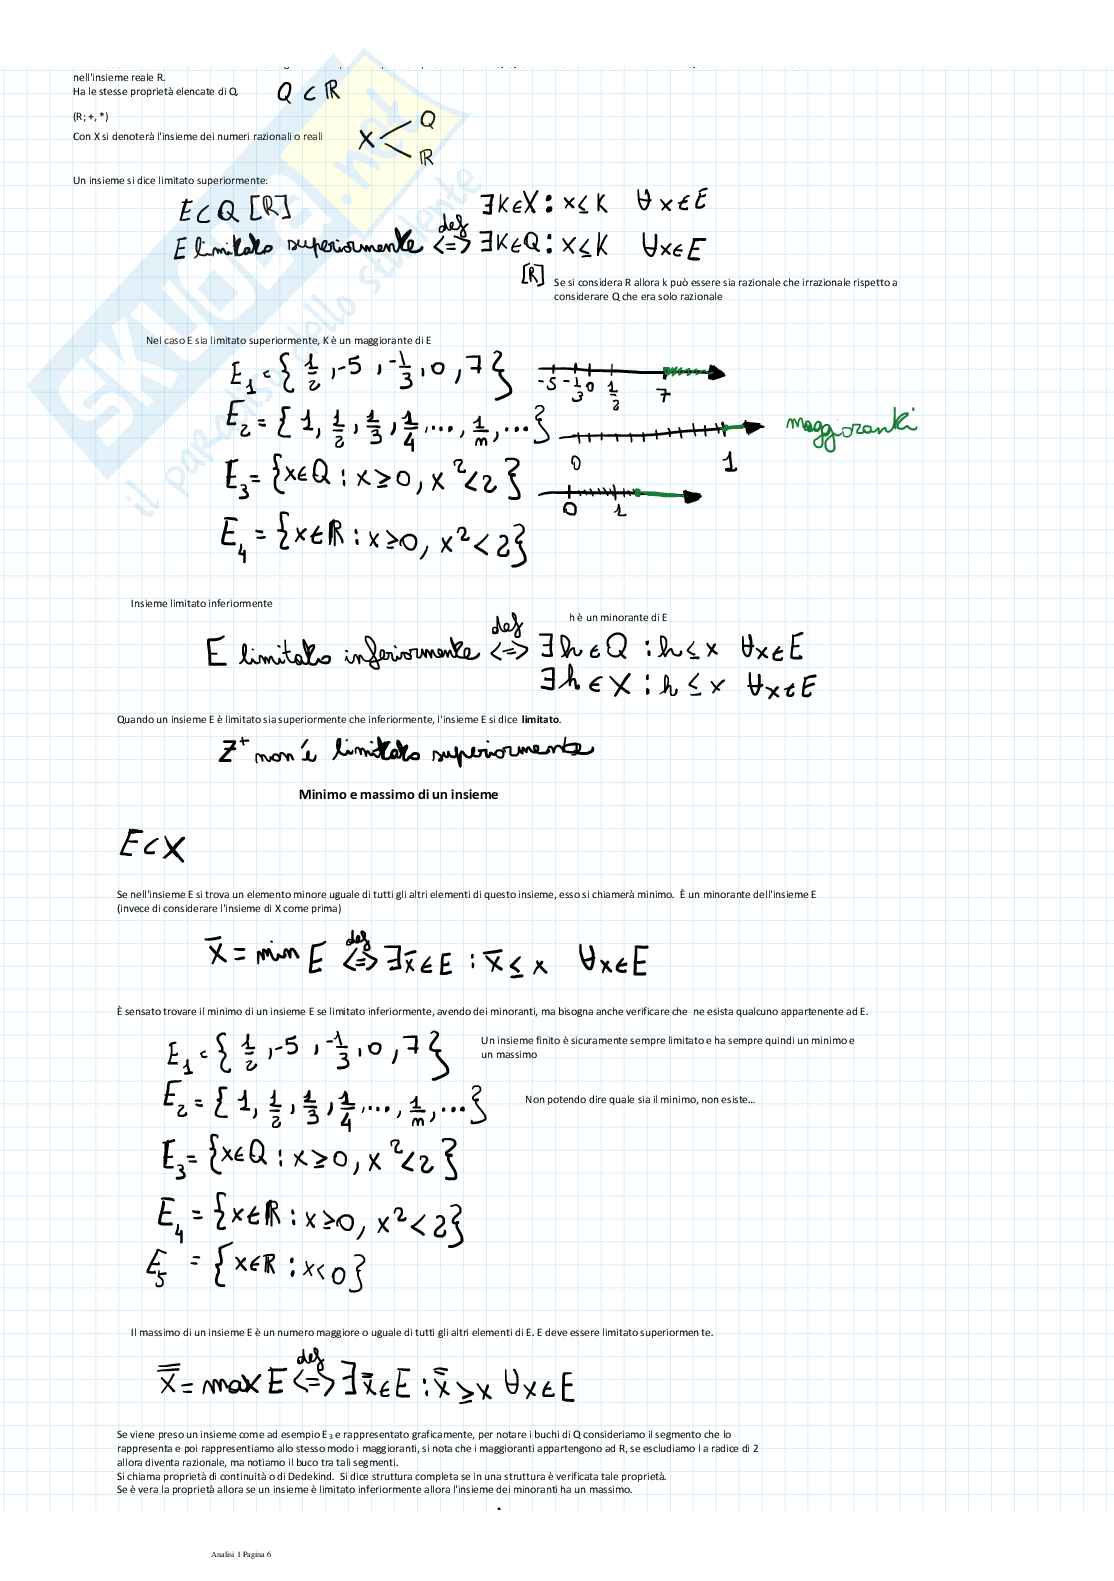 nell'insieme reale R.
Ha le stesse proprietà elencate di Q,
Q ⊂ ℝ
(R; +, *)
Con X si denoterà l'insieme dei numeri razionali o reali
X < Q
ℝ
Un insieme si dice limitato superiormente:
E ⊂ Q [R]
∃ K ∈ X : x ≤ K ∀ x ∈ E
E limitato superiormente <=> def ∃ K ∈ Q : x ≤ K ∀ x ∈ E
[R] Se si considera R allora k può essere sia razionale che irrazionale rispetto a
considerare Q che era solo razionale
Nel caso E sia limitato superiormente, K è un maggiorante di E
E₁ = { 1/2, -5, -1/3, 0, 7 }
-5 -1/3 0 1/2 7
E₂ = { 1, 1/2, 1/3, 1/4, ..., 1/m, ... }
0 1
maggioranti
E₃ = {x ∈ Q : x ≥ 0, x² < 2}
0 1
E₄ = {x ∈ ℝ : x ≥ 0, x² < 2}
Insieme limitato inferiormente
h è un minorante di E
E limitato inferiormente <=> def ∃ h ∈ Q : h ≤ x ∀ x ∈ E
∃ h ∈ X : h ≤ x ∀ x ∈ E
Quando un insieme E è limitato sia superiormente che inferiormente, l'insieme E si dice limitato.
Z⁺ non è limitato superiormente
Minimo e massimo di un insieme
E ⊂ X
Se nell'insieme E si trova un elemento minore uguale di tutti gli altri elementi di questo insieme, esso si chiamerà minimo. È un minorante dell'insieme E
(invece di considerare l'insieme di X come prima)
x̄ = min E <=> def ∃ x̄ ∈ E : x̄ ≤ x ∀ x ∈ E
È sensato trovare il minimo di un insieme E se limitato inferiormente, avendo dei minoranti, ma bisogna anche verificare che ne esista qualcuno appartenente ad E.
E₁ = { 1/2, -5, -1/3, 0, 7 }
Un insieme finito è sicuramente sempre limitato e ha sempre quindi un minimo e
un massimo
E₂ = { 1, 1/2, 1/3, 1/4, ..., 1/m, ... }
Non potendo dire quale sia il minimo, non esiste...
E₃ = {x ∈ Q : x ≥ 0, x² < 2}
E₄ = {x ∈ ℝ : x ≥ 0, x² < 2}
E₅ = {x ∈ ℝ : x < 0}
Il massimo di un insieme E è un numero maggiore o uguale di tutti gli altri elementi di E. E deve essere limitato superiormente.
x̿ = max E <=> def ∃ x̿ ∈ E : x̿ ≥ x ∀ x ∈ E
Se viene preso un insieme come ad esempio E₃ e rappresentato graficamente, per notare i buchi di Q consideriamo il segmento che lo
rappresenta e poi rappresentiamo allo stesso modo i maggioranti, si nota che i maggioranti appartengono ad R, se escludiamo la radice di 2
allora diventa razionale, ma notiamo il buco tra tali segmenti.
Si chiama proprietà di continuità o di Dedekind. Si dice struttura completa se in una struttura è verificata tale proprietà.
Se è vera la proprietà allora se un insieme è limitato inferiormente allora l'insieme dei minoranti ha un massimo.
Analisi 1 Pagina 6
SKUOLA.net